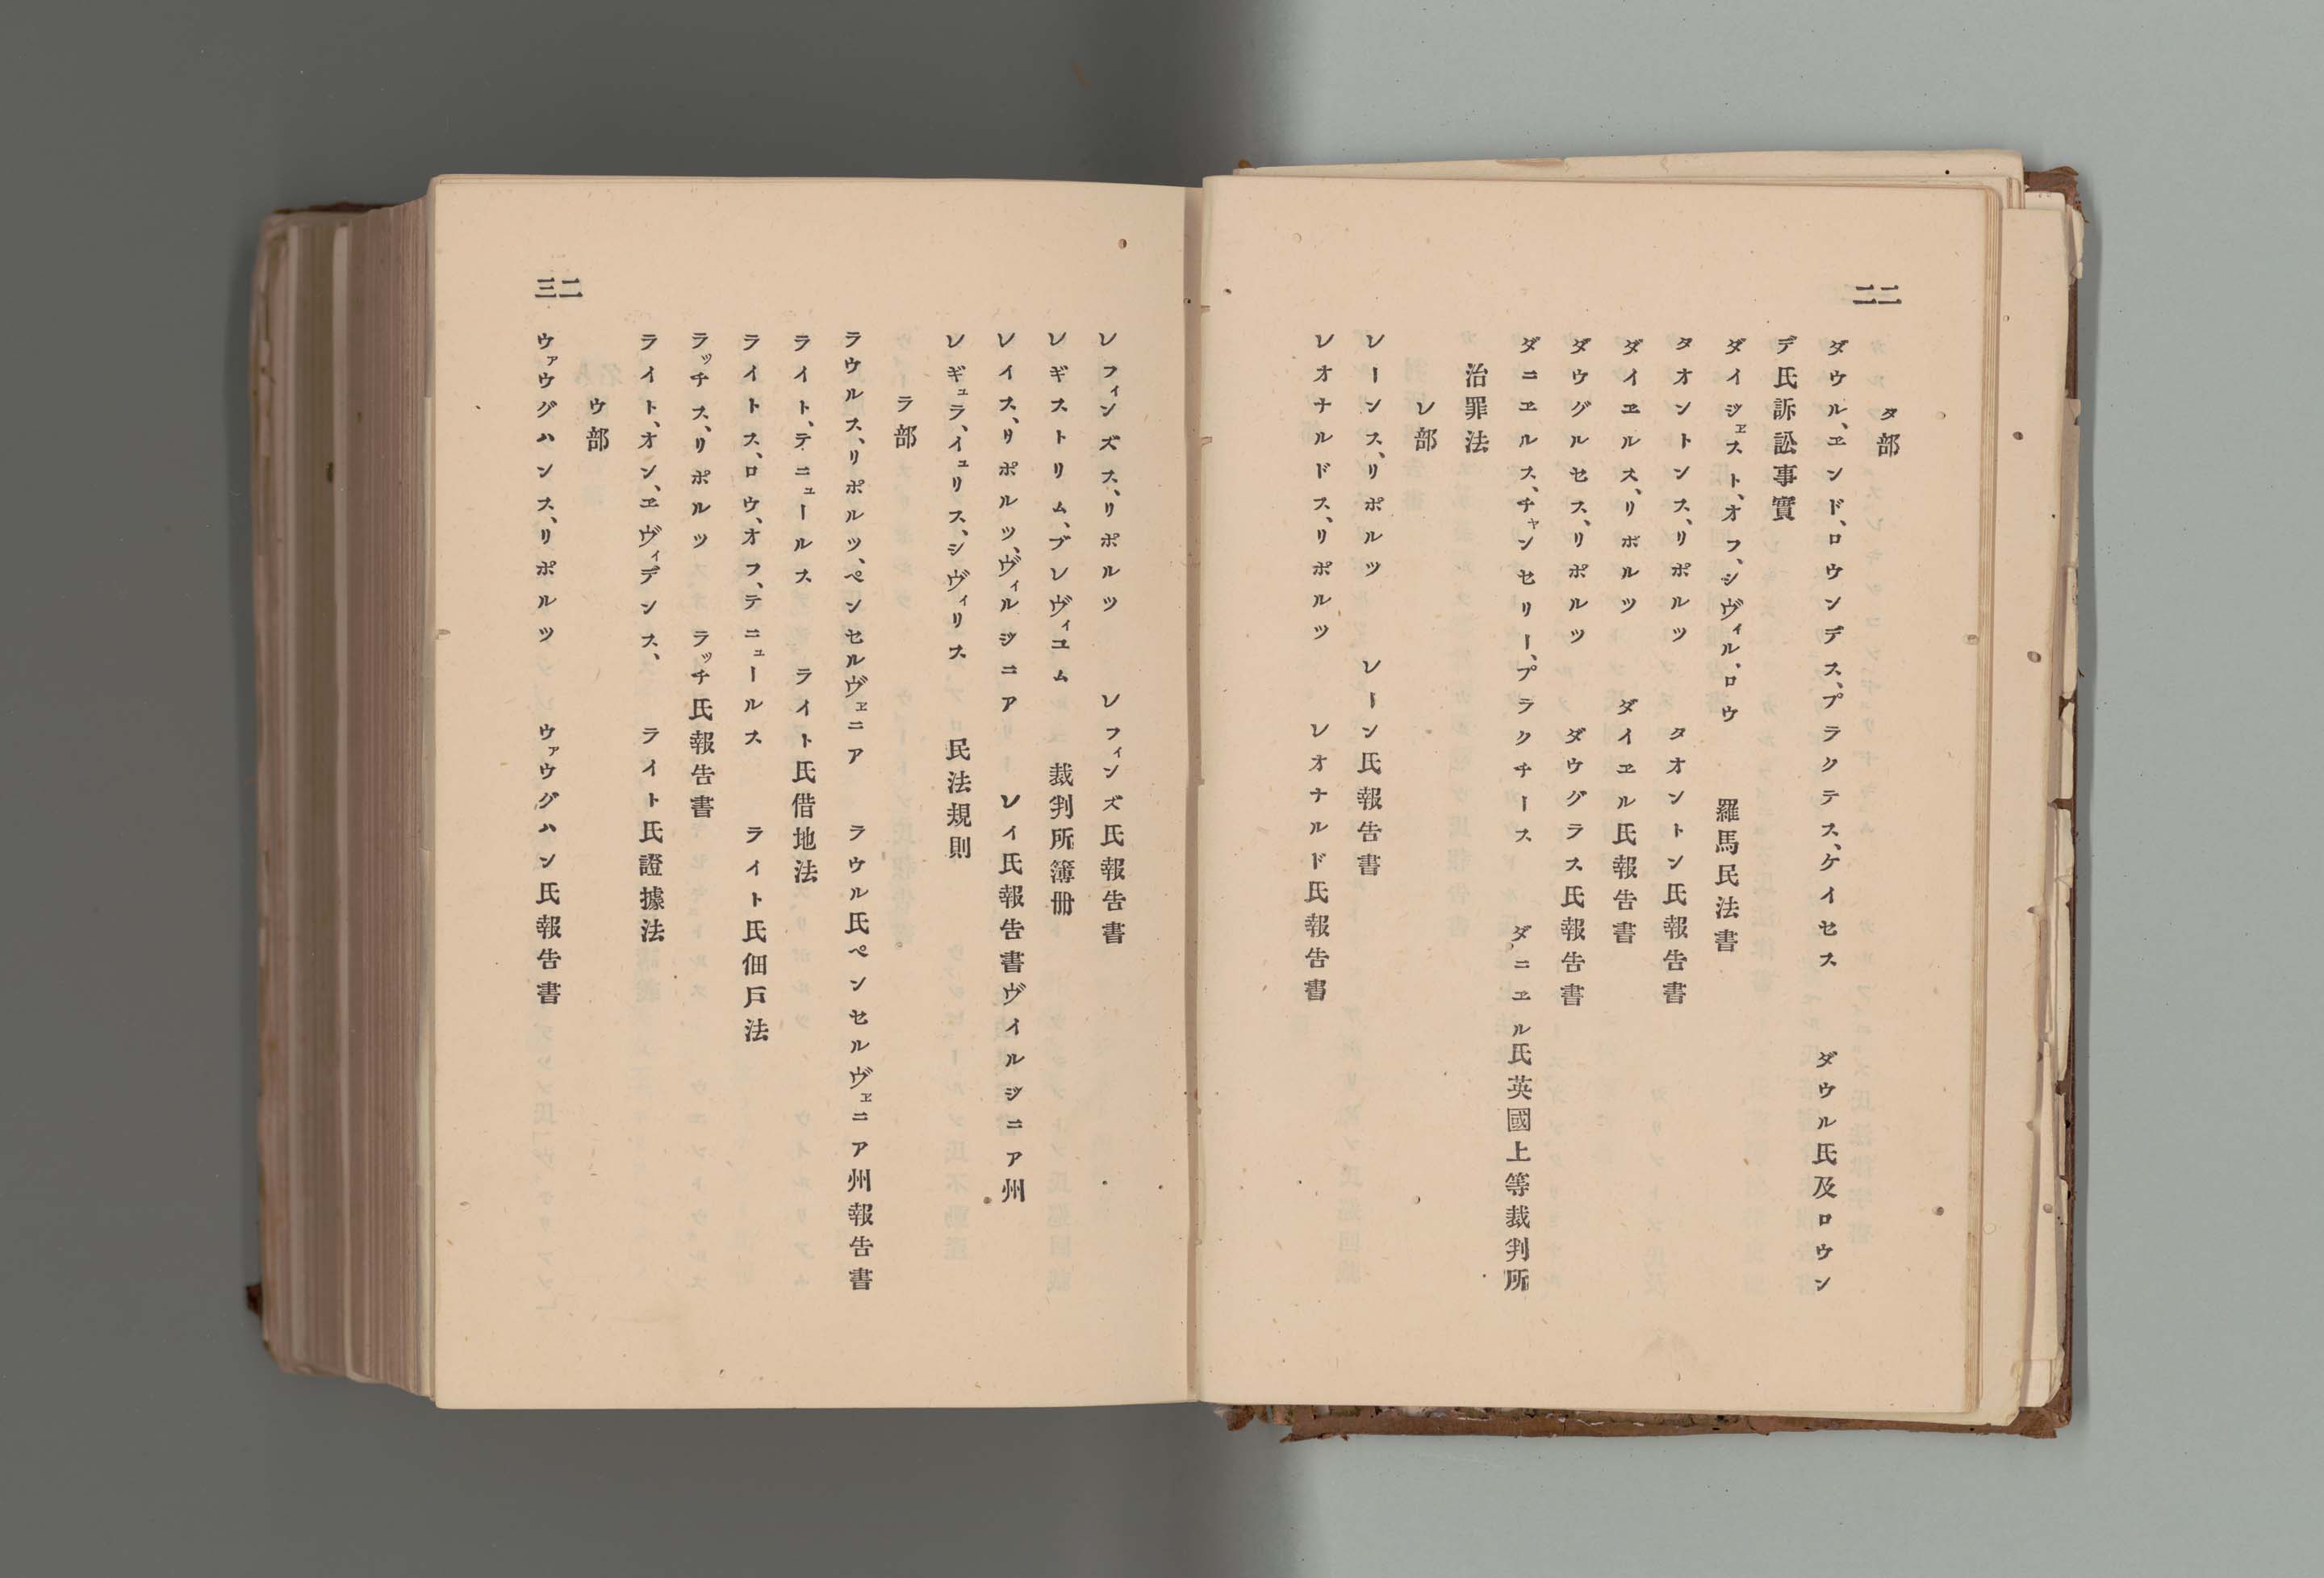 二二
タ部
ダウル、ヱンド、ロウンデス、プラクテス、ケイセス　ダウル氏及ロウン
デ氏訴訟事實
ダイジェスト、オフ、シヴィル、ロウ　羅馬民法書
タオントンス、リポルツ　タオントン氏報告書
ダイヱルス、リポルツ　ダイヱル氏報告書
ダウグルセス、リポルツ　ダウグラス氏報告書
ダニヱルス、チャンセリー、プラクチース　ダニヱル氏英國上等裁判所
治罪法
レ部
レーンス、リポルツ　レーン氏報告書
レオナルドス、リポルツ　レオナルド氏報告書
二三
レフィンズス、リポルツ　レフィンズ氏報告書
レギストリム、ブレヴィユム　裁判所簿册
レイス、リポルツ、ヴィルジニア　レイ氏報告書ヴイルジニア州
レギュラ、イュリス、シヴィリス　民法規則
ラ部
ラウルス、リポルツ、ペンセルヴェニア　ラウル氏ペンセルヴェニア州報告書
ライト、テニュールス　ライト氏借地法
ライトス、ロウ、オフ、テニュールス　ライト氏佃戸法
ラッチス、リポルツ　ラッチ氏報告書
ライト、オン、ヱヴィデンス、　ライト氏證據法
ウ部
ウァウグハンス、リポルツ　ウァウグハン氏報告書